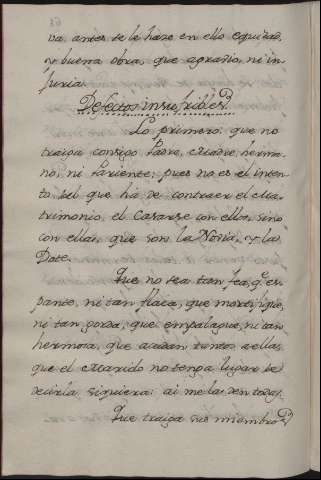 va, antes se le haze en ello equidad,
y buena obra, que agravio, ni in-
juria.
Defectos insufribles.
Lo primero: que no
traiga consigo Padre, Madre, herma-
no, ni Pariente; pues no es el inten-
to del que hà de contraer el Ma-
trimonio, el Casarse con ellos, sino
con ellas, que son la Novia, y la
Dote.
Que no sea tan fea, q.e es-
pante, ni tan flaca, que mortifique,
ni tan gorda, que empalague, ni tan
hermosa, que acudan tantos a ella,
que el Marido no tenga lugar de
decirla siquiera: ai me las den todas.
Que traiga sus miembros